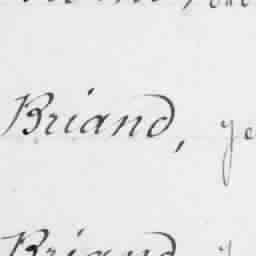 Briand, ye
Briand